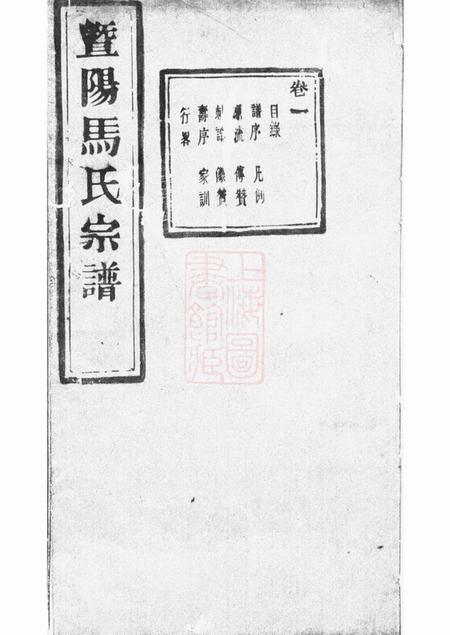 卷一
目錄
譜序 凡例
源流 傳贊
制誥 像贊
壽序 家訓
行畧
暨陽馬氏宗譜
上海圖
書館藏